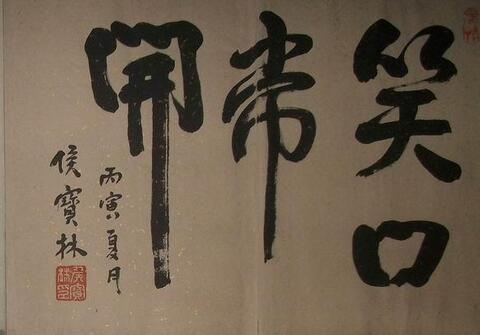 笑口
常
開
丙寅夏月
侯寶林